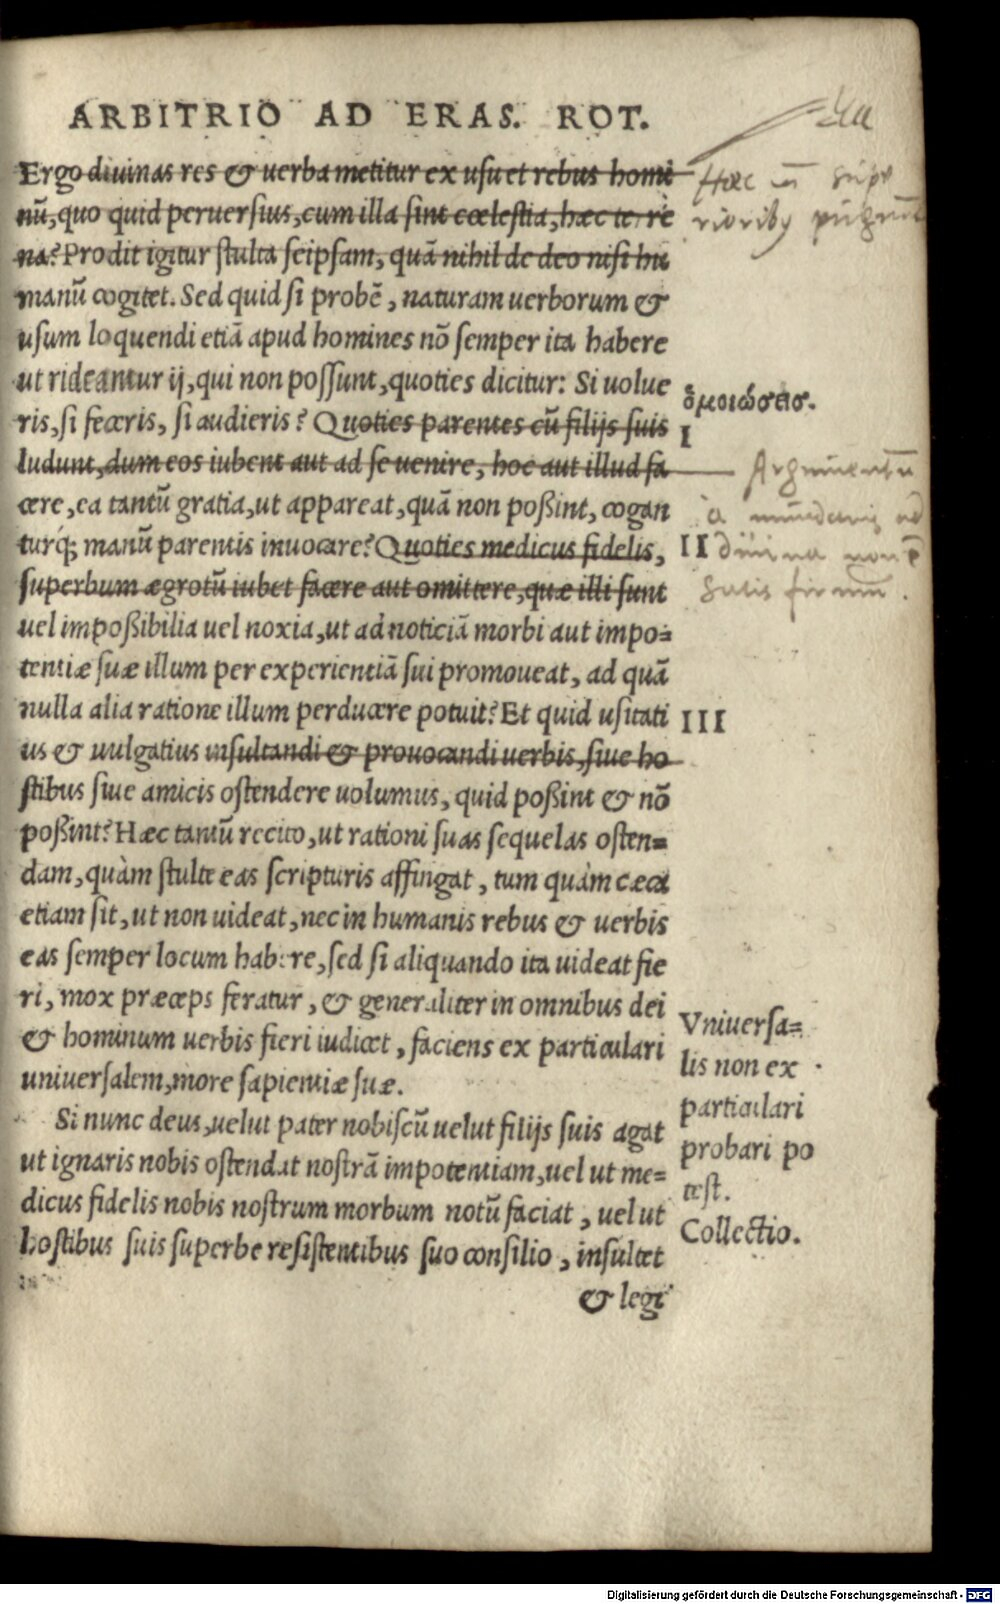 ARBITRIO AD ERAS. ROT.
Ergo diuinas res & uerba metitur ex usu et rebus homi
nũ, quo quid peruersius, cum illa sint cœlestia, hæc terre
na? Prodit igitur stulta seipsam, quã nihil de deo nisi hu
manũ cogitet. Sed quid si probẽ, naturam uerborum &
usum loquendi etiã apud homines nõ semper ita habere
ut rideantur ij, qui non possunt, quoties dicitur: Si uolue
ris, si feceris, si audieris? Quoties parentes cũ filijs suis
ludunt, dum eos iubent aut ad se uenire, hoc aut illud fa
cere, ea tantũ gratia, ut appareat, quã non poßint, cogan
turq́; manũ parentis inuocare? Quoties medicus fidelis,
superbum ægrotũ iubet facere aut omittere, quæ illi sunt
uel impoßibilia uel noxia, ut ad noticiã morbi aut impo=
tentiæ suæ illum per experientiã sui promoueat, ad quã
nulla alia ratione illum perducere potuit? Et quid usitati
us & uulgatius insultandi & prouocandi uerbis, siue ho
stibus siue amicis ostendere uolumus, quid poßint & nõ
poßint? Hæc tantũ recito, ut rationi suas sequelas osten=
dam, quàm stulte eas scripturis affingat, tum quàm cæca
etiam sit, ut non uideat, nec in humanis rebus & uerbis
eas semper locum habere, sed si aliquando ita uideat fie
ri, mox præceps feratur, & generaliter in omnibus dei
& hominum uerbis fieri iudicet, faciens ex particulari
uniuersalem, more sapientiæ suæ.
Si nunc deus, uelut pater nobiscũ uelut filijs suis agat
ut ignaris nobis ostendat nostrã impotentiam, uel ut me=
dicus fidelis nobis nostrum morbum notũ faciat, uel ut
hostibus suis superbe resistentibus suo consilio, insultet
& legi
Hæc
ὁμοιώσεις.
I
Argumentũ
à
II
diuina non
satis firmũ.
III
Vniuersa=
lis non ex
particulari
probari po
test.
Collectio.
Digitalisierung gefördert durch die Deutsche Forschungsgemeinschaft - DFG